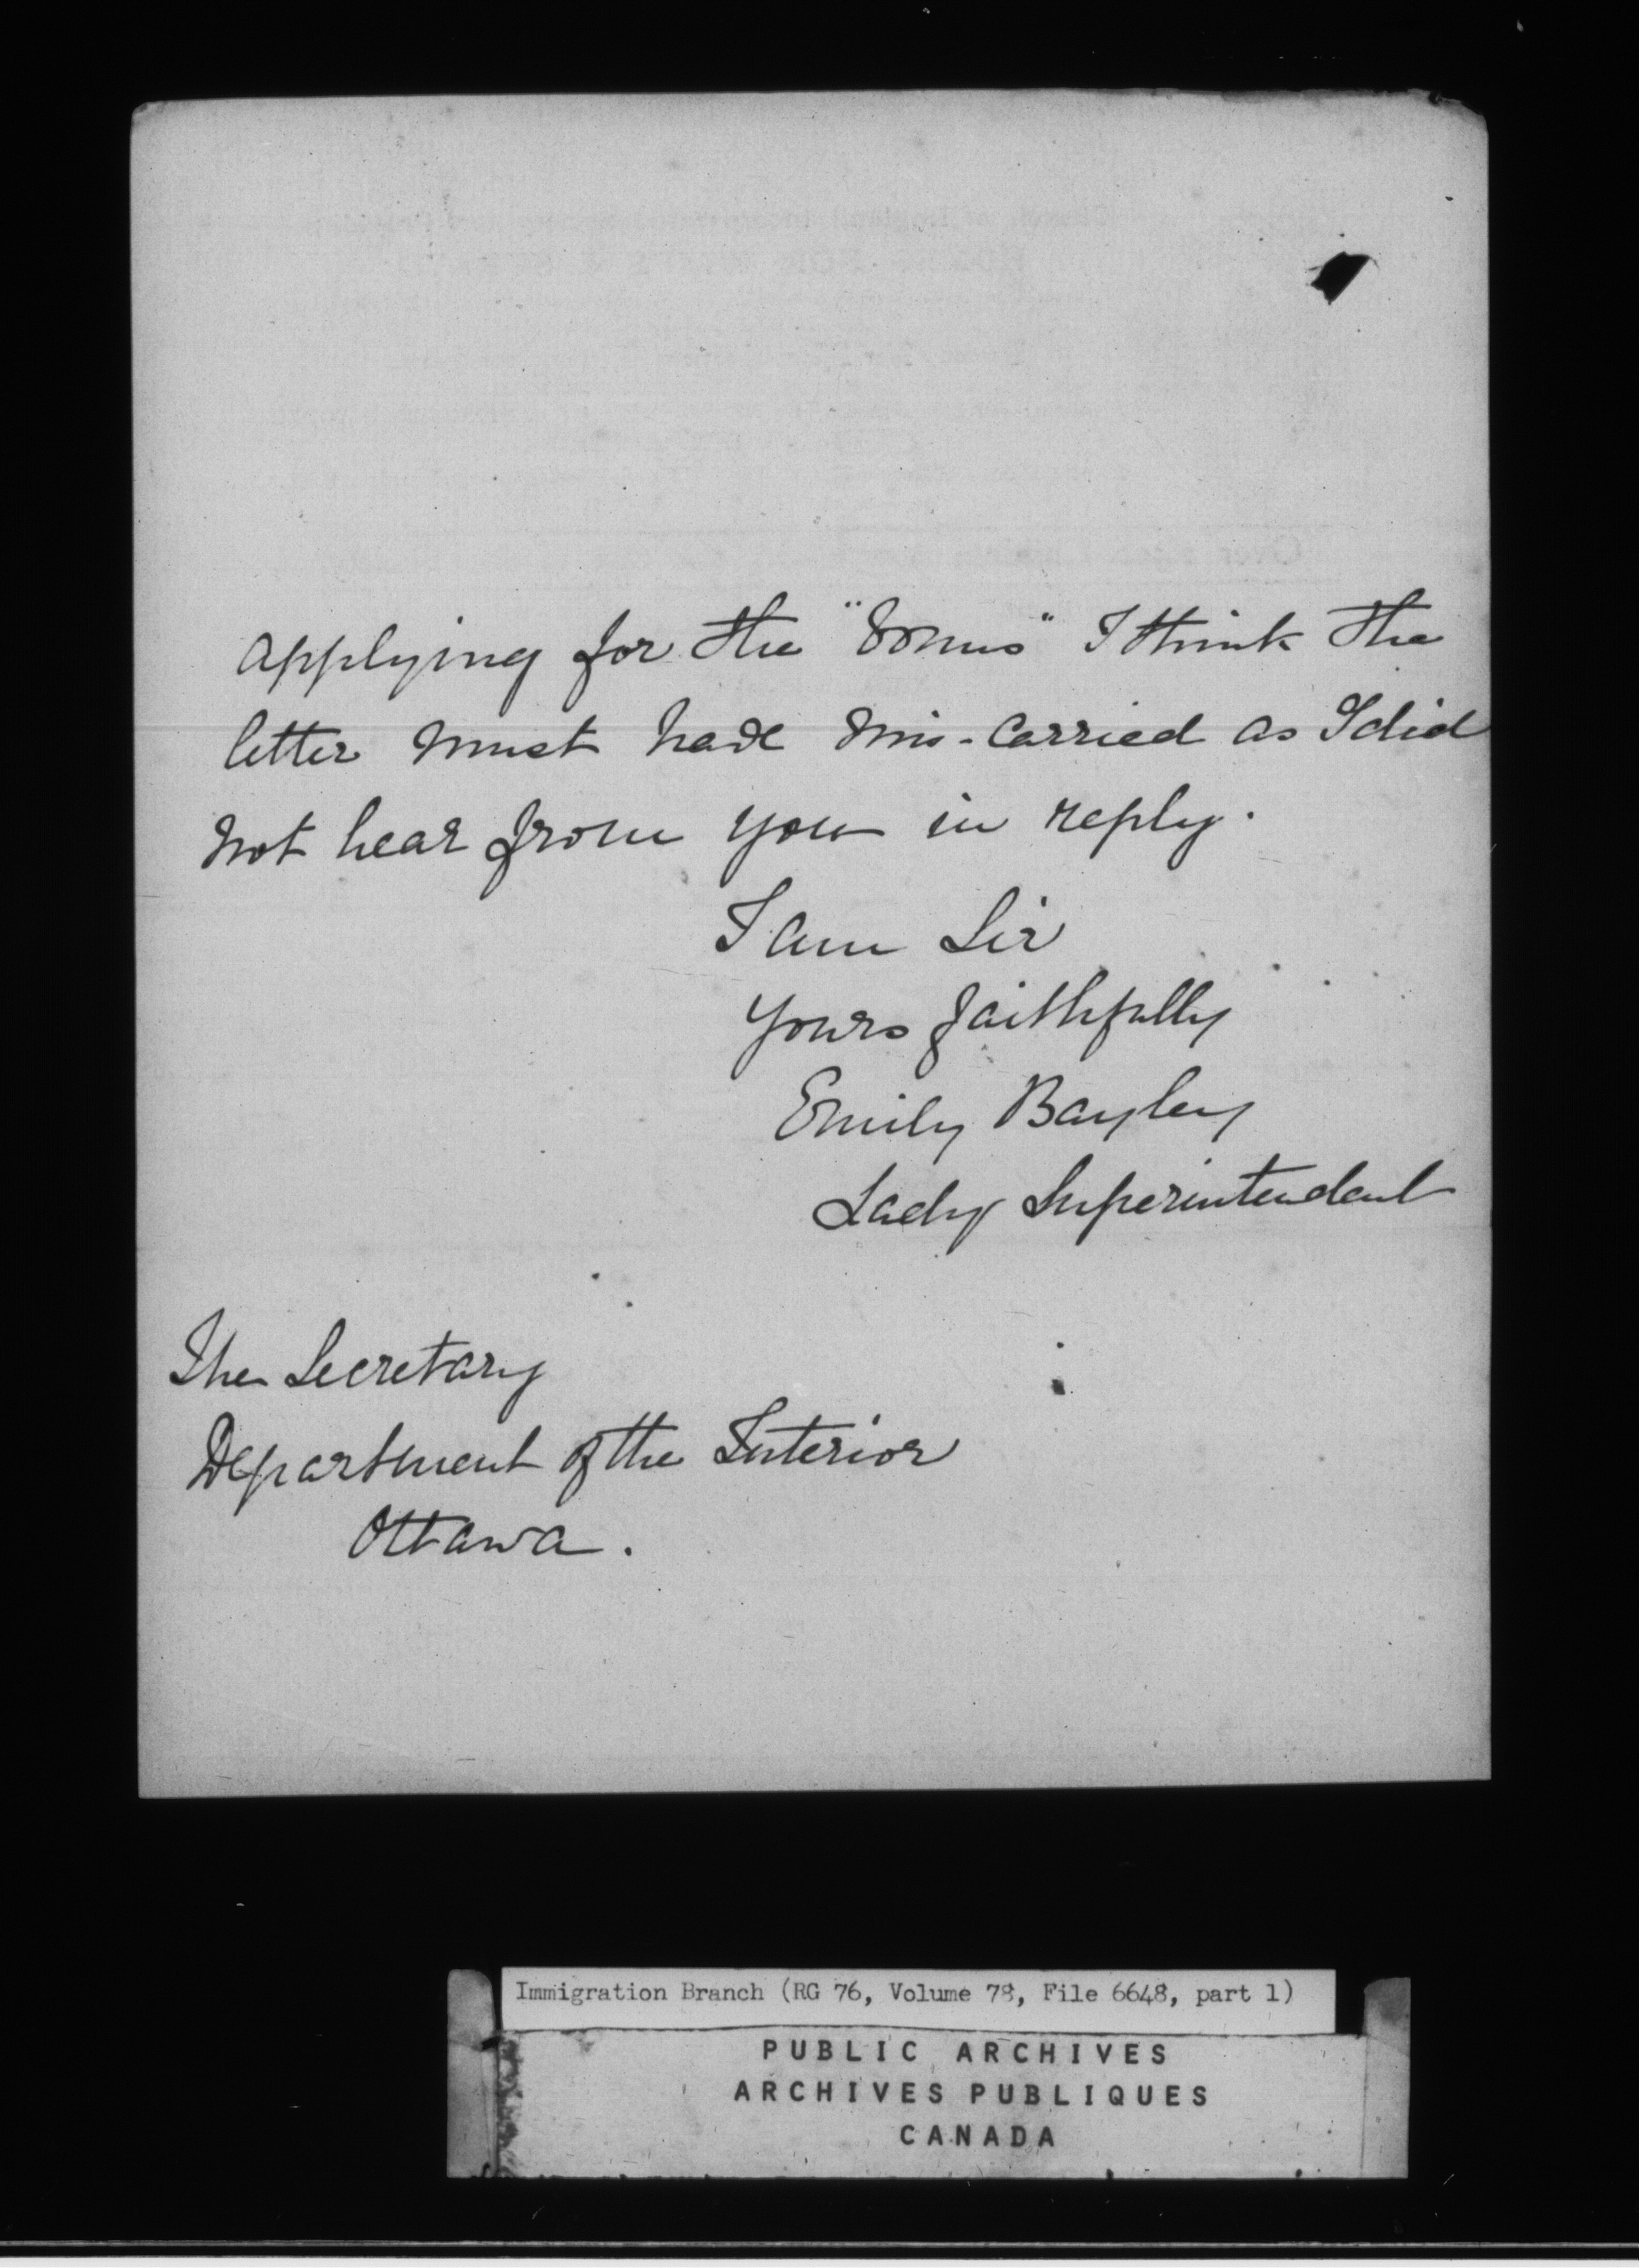 applying for the "bonus" I think the
letter must have mis-carried as I did
not hear from you in reply.
I am Sir
Yours faithfully
Emily Bayley
Lady Superintendent
The Secretary
Department of the Interior
Ottawa.
Immigration Branch (RG 76, Volume 78, File 6648, part 1)
PUBLIC ARCHIVES
ARCHIVES PUBLIQUES
CANADA